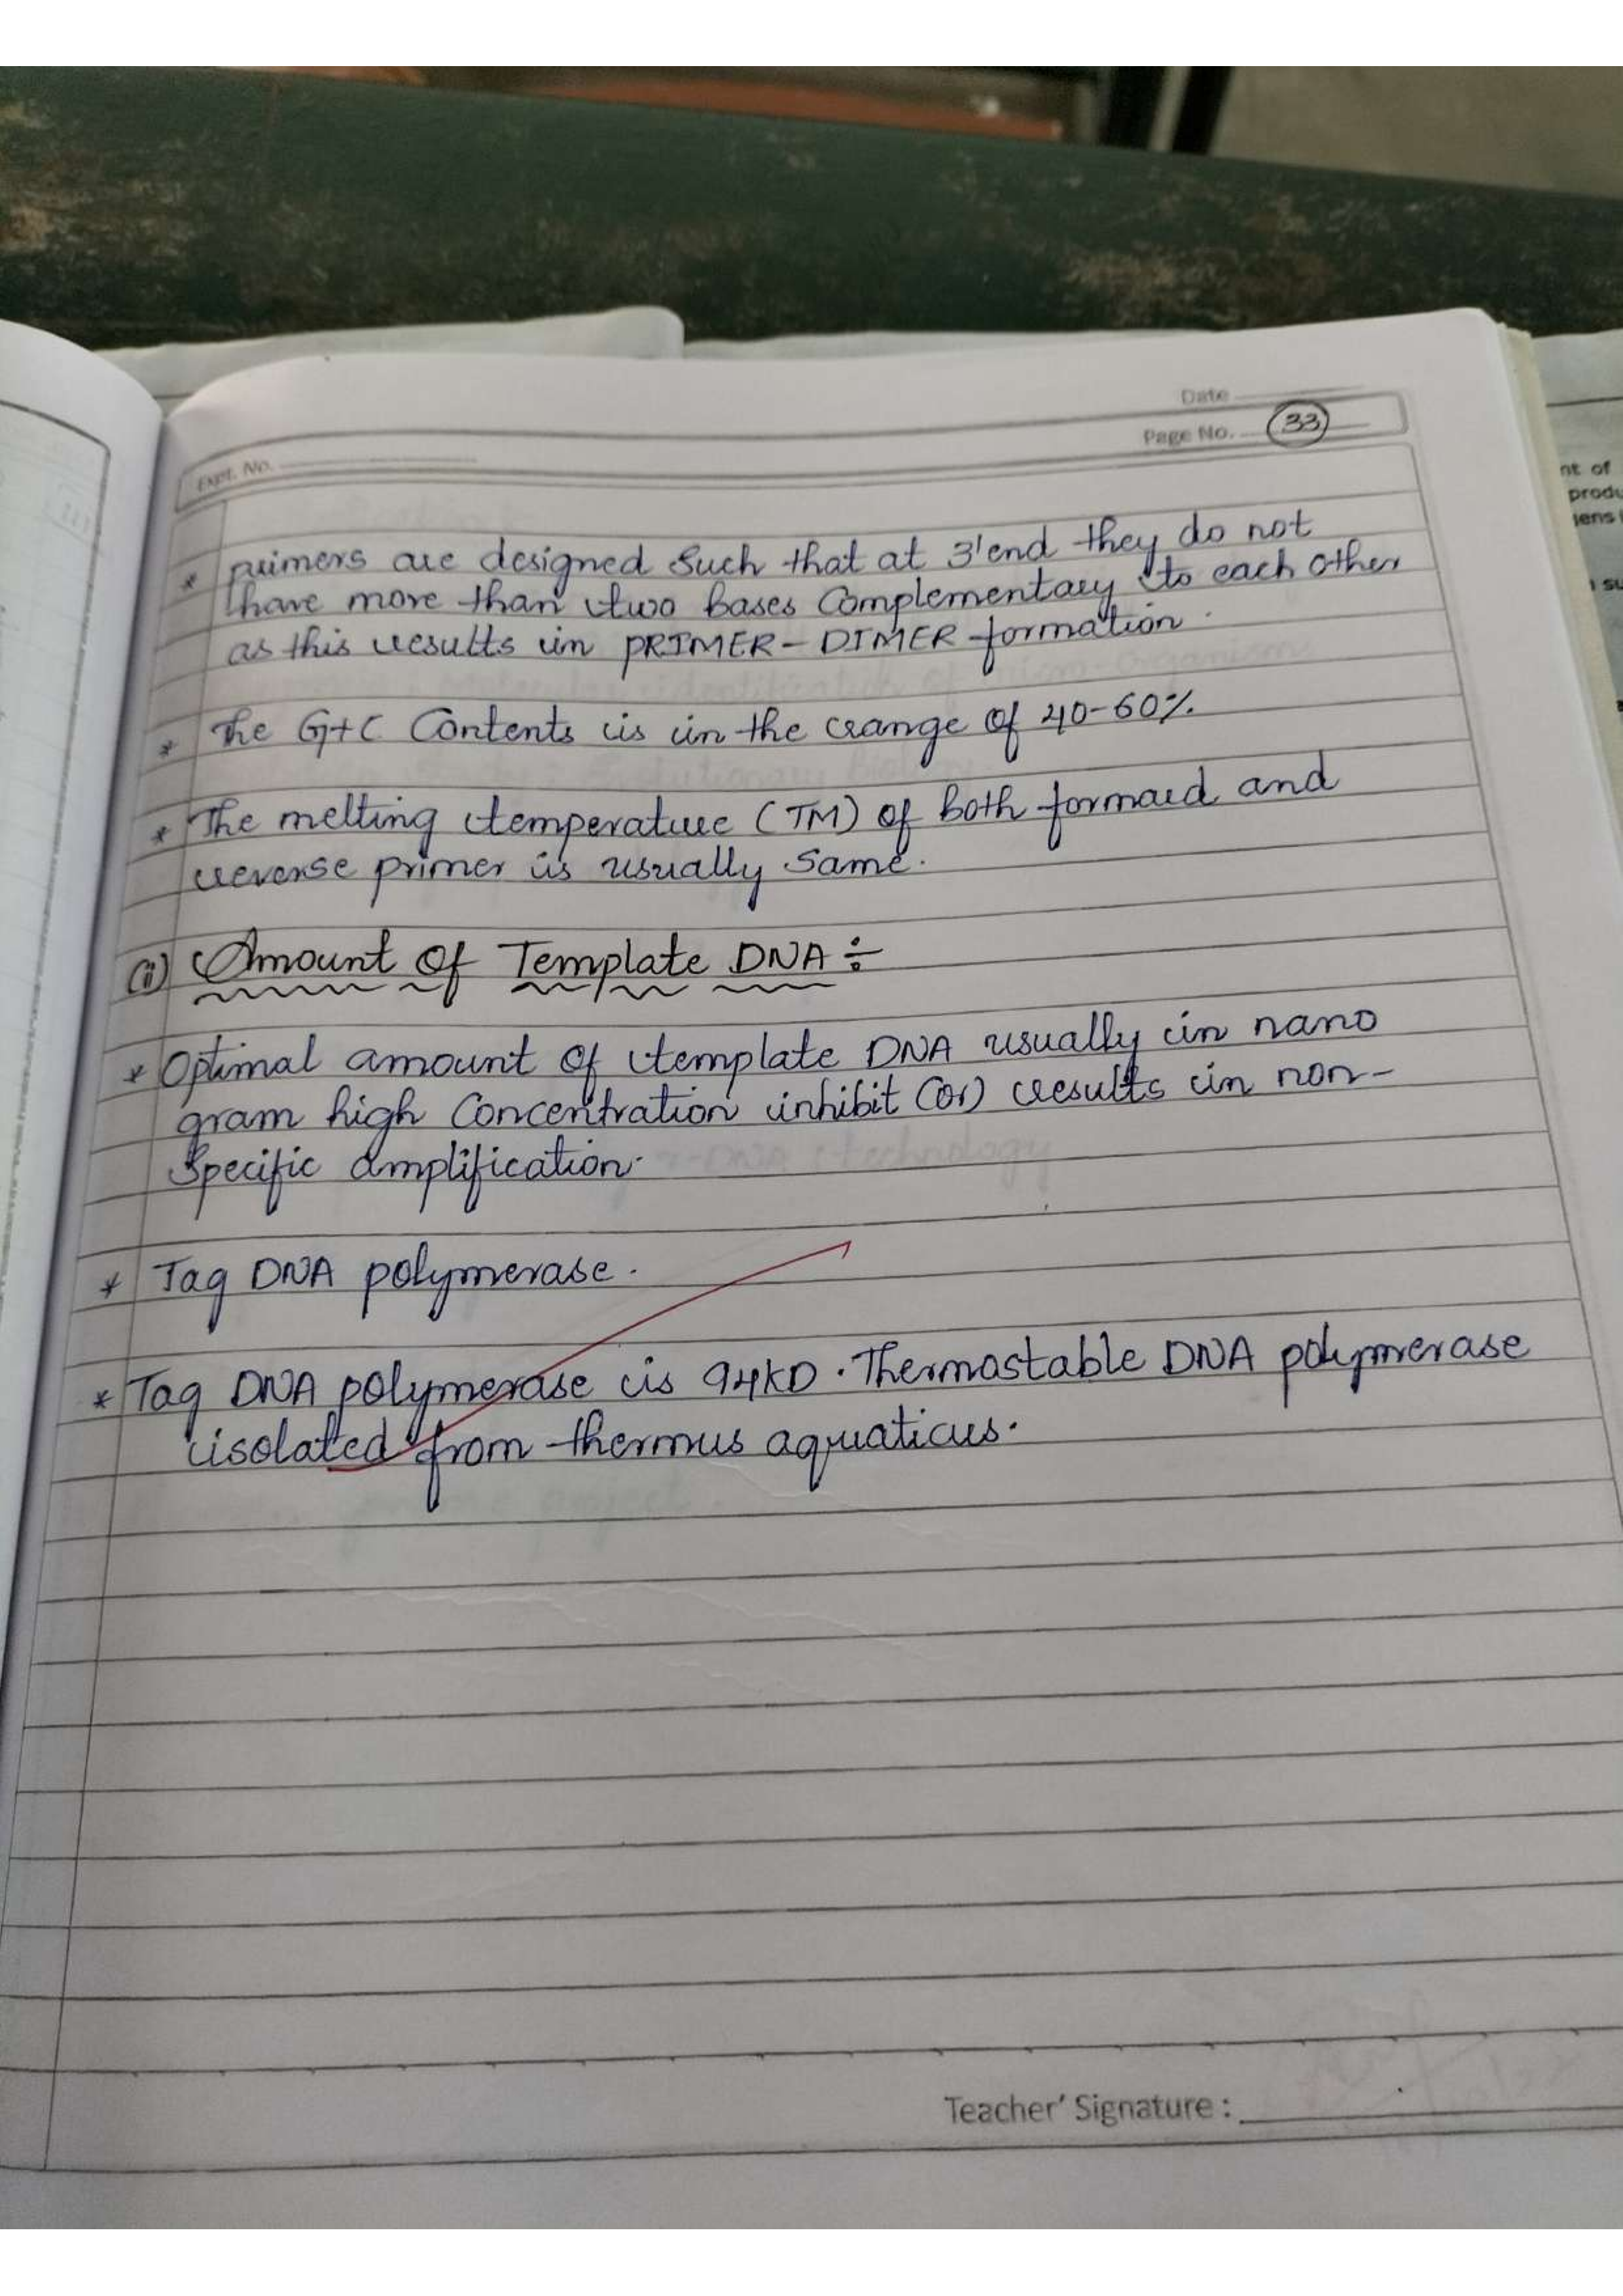 Date
Page No. 33
Expt. No.
* primers are designed Such that at 3'end they do not
have more than two bases Complementary to each other
as this results in PRIMER-DIMER formation.
* The G+C Contents is in the range of 40-60%.
* The melting temperature (TM) of both formard and
reverse primer is usually Same.
(ii) Amount Of Template DNA ÷
* Optimal amount of template DNA usually in nano
gram high Concentration inhibit (or) results in non-
Specific amplification.
* Tag DNA polymerase.
* Tag DNA polymerase is 94KD. Thermostable DNA polymerase
isolated from thermus aquaticus.
Teacher' Signature :
nt of
produ
gens